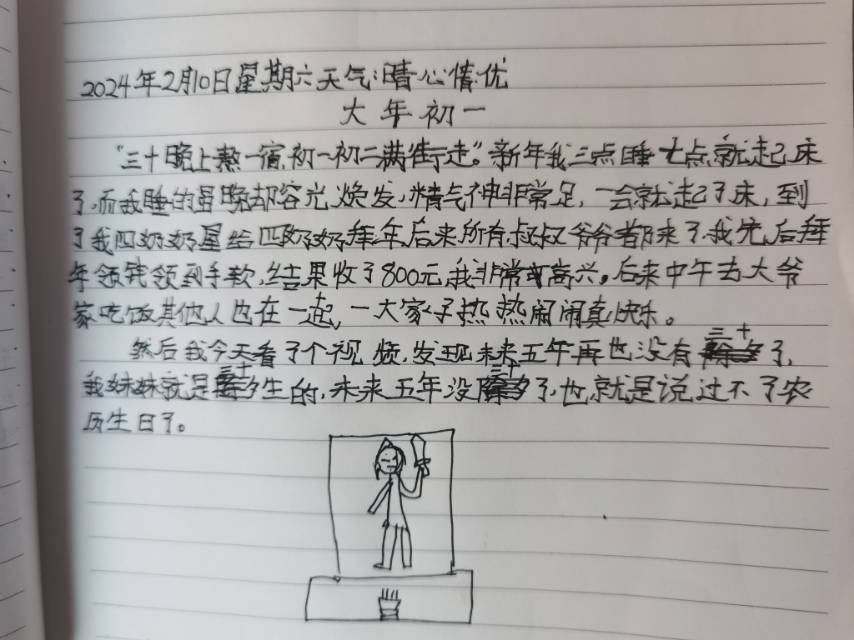 2024年2月10日星期六天气:晴心情:优
大年初一
"三十晚上熬一宿,初一初二满街走"。新年我三点睡七点就起床
了,而我睡的虽晚却容光焕发,精气神非常足,一会就起了床,到
了我四奶奶屋给四奶奶拜年,后来所有叔叔爷爷都来了,我先后拜
年领钱领到手软,结果收了800元,我非常高兴。后来中午去大爷
家吃饭其他人也在一起,一大家子热热闹闹真快乐。
然后我今天看了个视频,发现未来五年再也没有三十了,
我妹妹就是三十生的,未来五年没三十了,也就是说过不了农
历生日了。